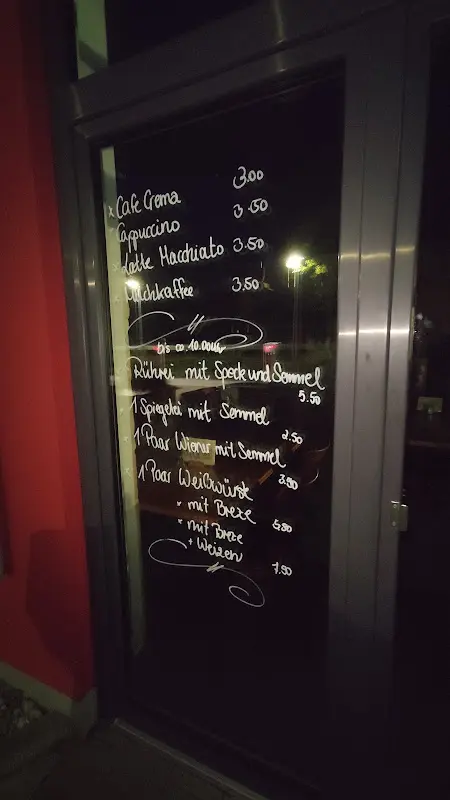 x Cafe Crema 3.00
x Cappuccino 3.50
x Latte Macchiato 3.50
x Milchkaffee 3.50
bis ca 10.00 Uhr
x Rührei mit Speck und Semmel
5.50
x 1 Spiegelei mit Semmel
2.50
x 1 Paar Wiener mit Semmel
3.90
x 1 Paar Weißwürste
* mit Breze 5.80
* mit Breze
+ Weizen
7.90